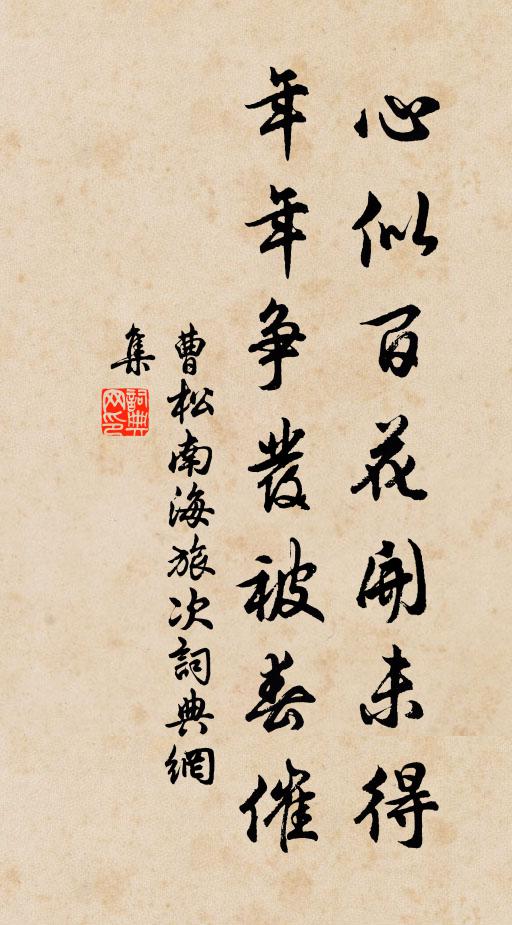 心似百花開未得
年年争發被春催
曹松南海旅次詞典網
集
詞典
网印